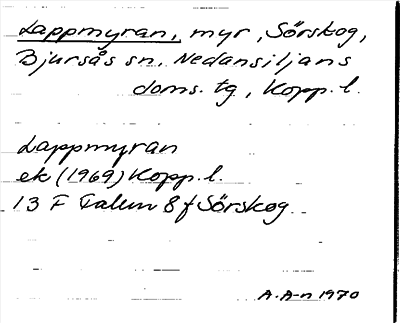 Lappmyran, myr, Sörskog,
Bjursås sn, Nedansiljans
doms. tg, Kopp. l.
Lappmyran
ek (1969) Kopp. l.
13 F Falun 8 f Sörskog
A. A-n 1970